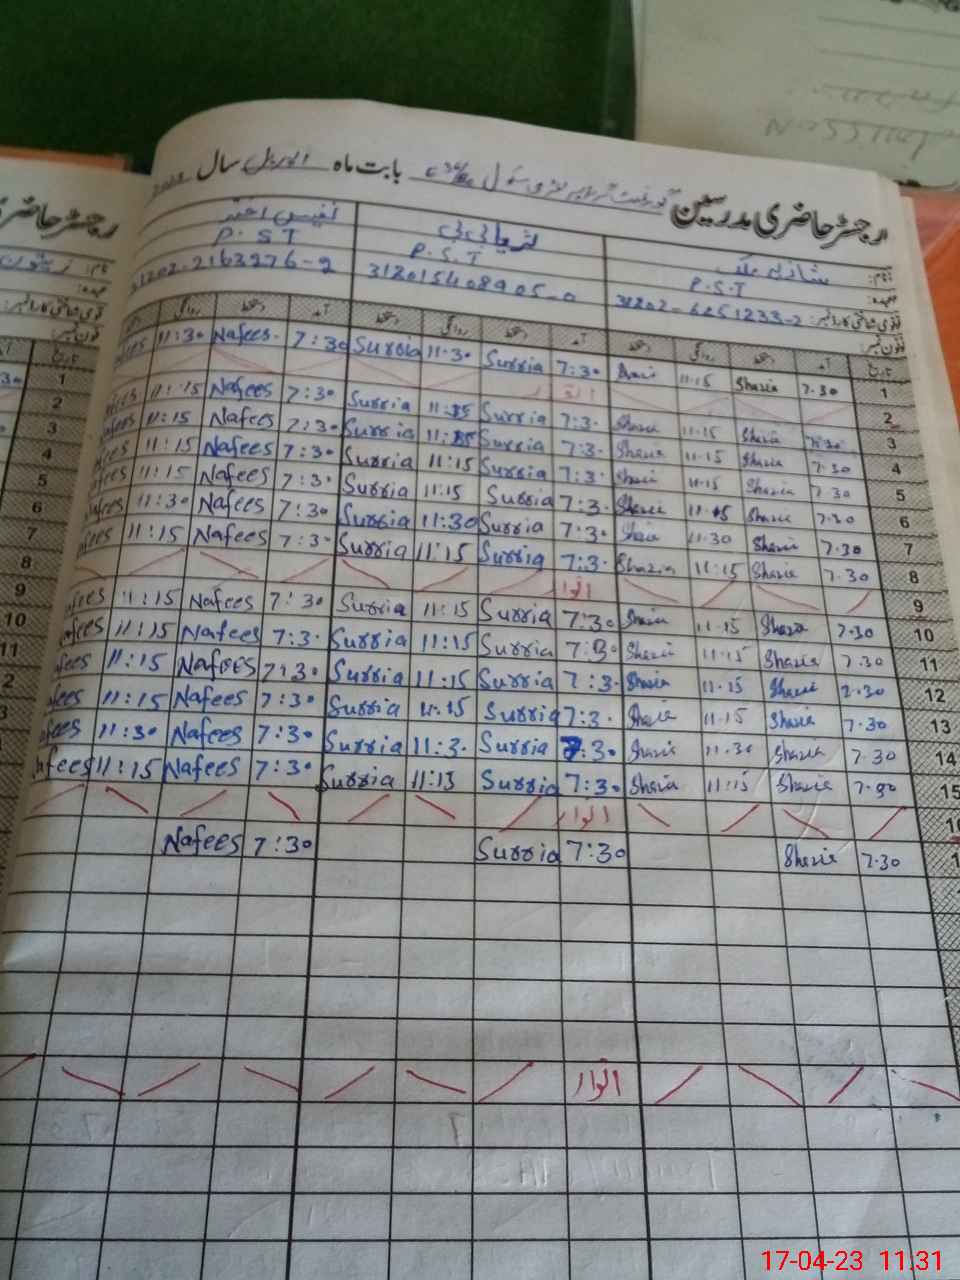 رجسٹر حاضری مدرسین گورنمنٹ گرلز پرائمری سکول بابت ماہ اپریل سال
نام: شازیہ ملک ثریا بی بی نفیس اختر
عہدہ: P.S.T P.S.T P.S.T
قومی شناختی کارڈ نمبر: 31202-6251233-2 312015408905-0 31202-2163276-9
فون نمبر:
تاریخ آمد دستخط روانگی دستخط آمد دستخط روانگی دستخط آمد دستخط روانگی
1 7.30 Shazia 11.15 7:30 Surria 11:30 Surria 7:30 Nafees 11:30
2 اتوار
3 7.30 Shazia 11.15 Shazia 7:3. Surria 11:15 Surria 7:30 Nafees 11:15
4 7.30 Shazia 11.15 Shazia 7:3. Surria 11:15 Surria 7:30 Nafees 11:15
5 7.30 Shazia 11.15 Shazia 7:3. Surria 11:15 Surria 7:30 Nafees 11:15
6 7.30 Shazia 11.15 Shazia 7:3. Surria 11:15 Surria 7:3. Nafees 11:15
7 7.30 Shazia 11.30 Shazia 7:30 Surria 11:30 Surria 7:30 Nafees 11:30
8 7.30 Shazia 11:15 Shazia 7:3. Surria 11:15 Surria 7:3. Nafees 11:15
9 اتوار
10 7.30 Shazia 11.15 Shazia 7:30 Surria 11:15 Surria 7:30 Nafees 11:15
11 7.30 Shazia 11.15 Shazia 7:30 Surria 11:15 Surria 7:3. Nafees 11:15
12 7.30 Shazia 11.15 Shazia 7:3. Surria 11:15 Surria 7:30 Nafees 11:15
13 7.30 Shazia 11.15 Shazia 7:3. Surria 11:15 Surria 7:30 Nafees 11:15
14 7.30 Shazia 11.30 Shazia 7:30 Surria 11:3. Surria 7:30 Nafees 11:30
15 7.30 Shazia 11:15 Shazia 7:30 Surria 11:15 Surria 7:30 Nafees 11:15
اتوار
7.30 Shazia 7:30 Surria 7:30 Nafees
اتوار
17-04-23 11.31